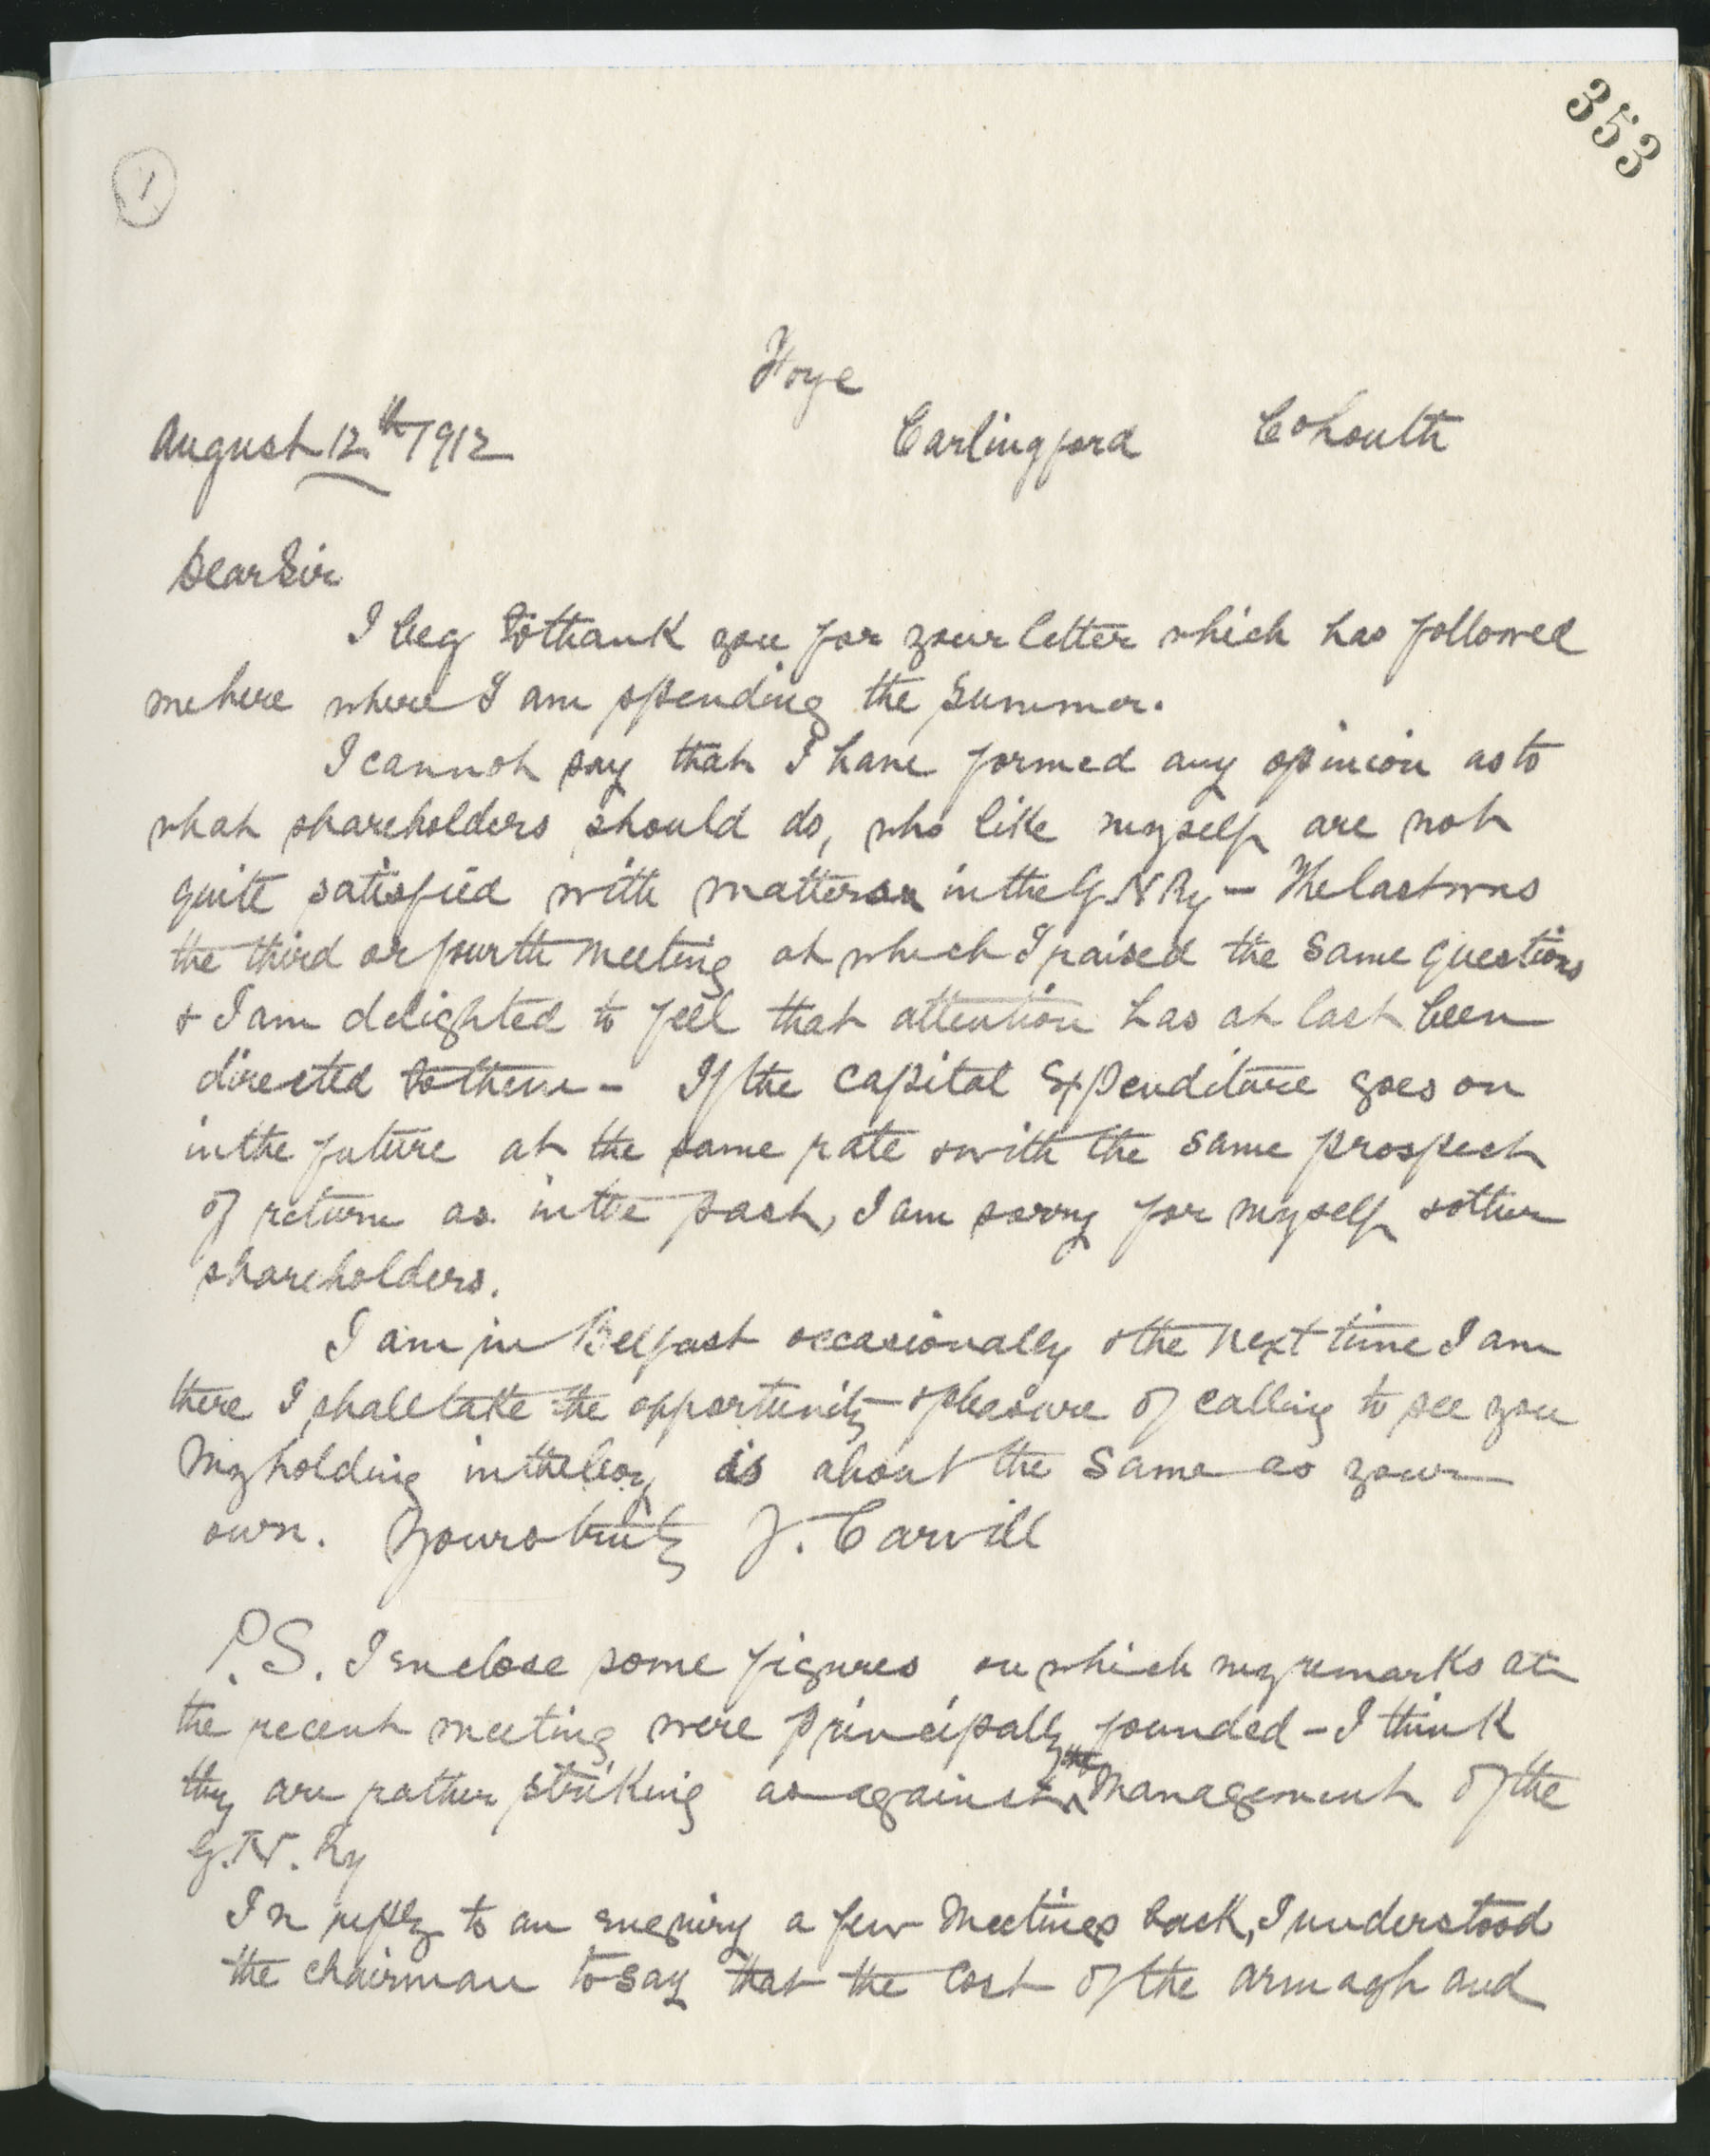 353
1
Foye
August 12th 1912 Carlingford Co Louth
Dear Sir
I beg to thank you for your letter which has followed
me here where I am spending the summer.
I cannot say that I have formed any opinion as to
what shareholders should do, who like myself are not
quite satisfied with matters in the G.N Ry - The last was
the third or fourth meeting at which I raised the same questions
& I am delighted to feel that attention has at last been
directed to them - If the capital Expenditure goes on
in the future at the same rate & with the same prospect
of return as in the past, I am sorry for myself & other
shareholders.
I am in Belfast occasionally & the next time I am
there I shall take the opportunity & pleasure of calling to see you
My holding in the Coy is about the same as your
own. Yours truly J. Carvill
P.S. I enclose some figures on which my remarks at
the recent meeting were principally founded - I think
they are rather striking as against the Management of the
G.N. Ry
In reply to an enquiry a few Meetings back, I understood
the Chairman to say that the Cost of the Armagh and